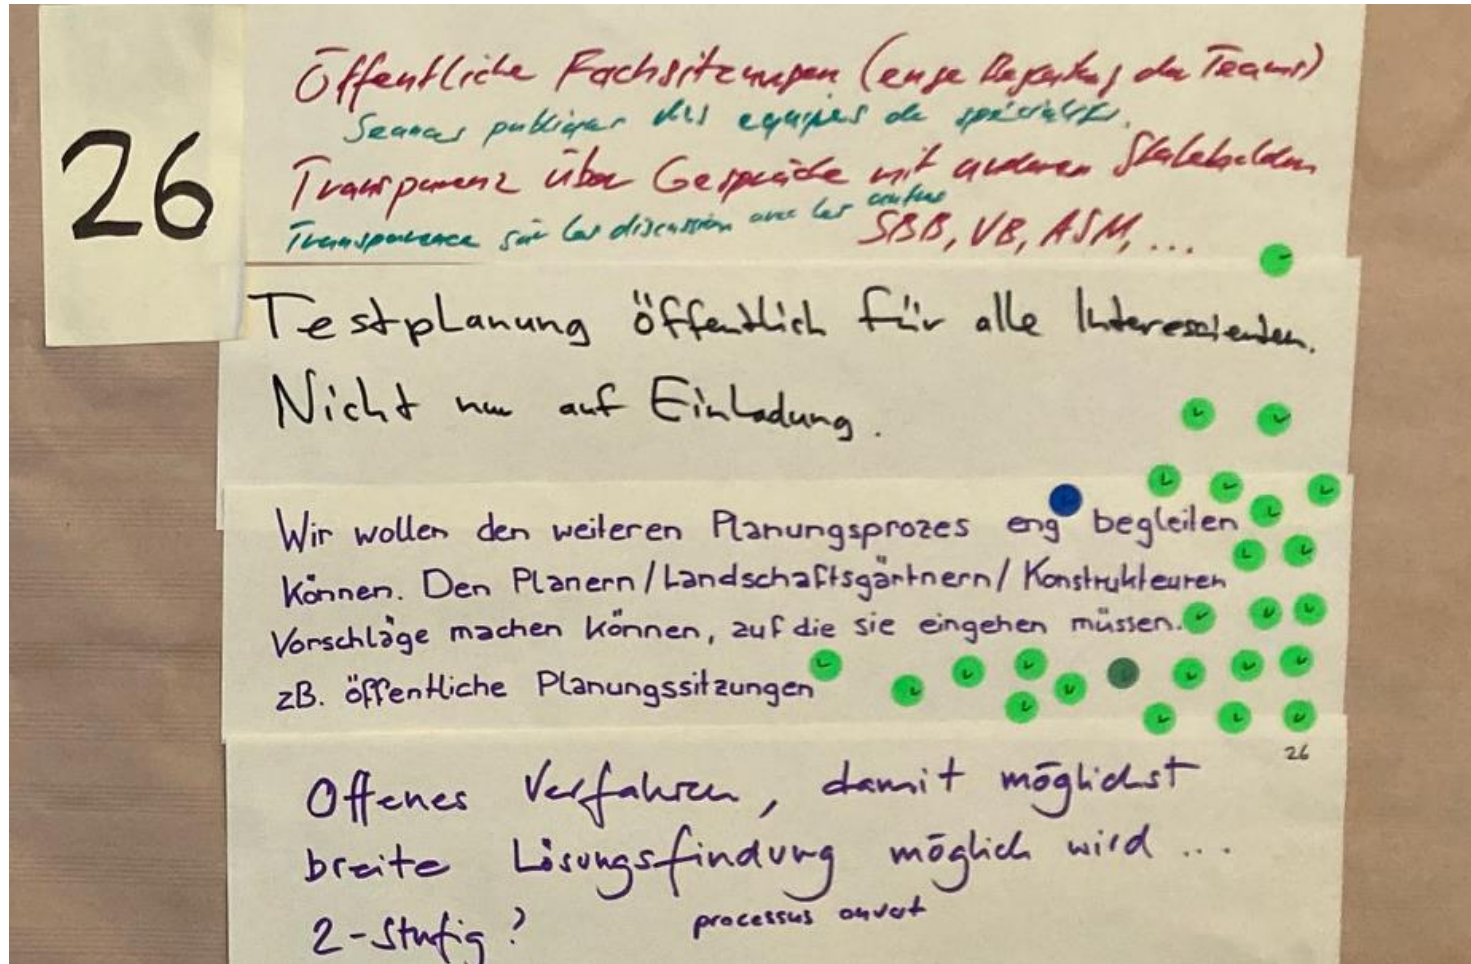 26
Öffentliche Fachsitzungen (enge Begleitung der Teams)
Seances publiques des equipes de
Transparenz über Gespräche mit anderen Stakeholdern
Transparence sur les discussion avec les autres
SBB, VB, ASM, ...
Testplanung öffentlich für alle Interessierten.
Nicht nur auf Einladung.
Wir wollen den weiteren Planungsprozes eng begleiten
können. Den Planern/Landschaftsgärtnern/Konstrukteuren
Vorschläge machen können, auf die sie eingehen müssen.
zB. öffentliche Planungssitzungen
26
Offenes Verfahren, damit möglichst
breite Lösungsfindung möglich wird ...
2-Stufig?
processus ouvert